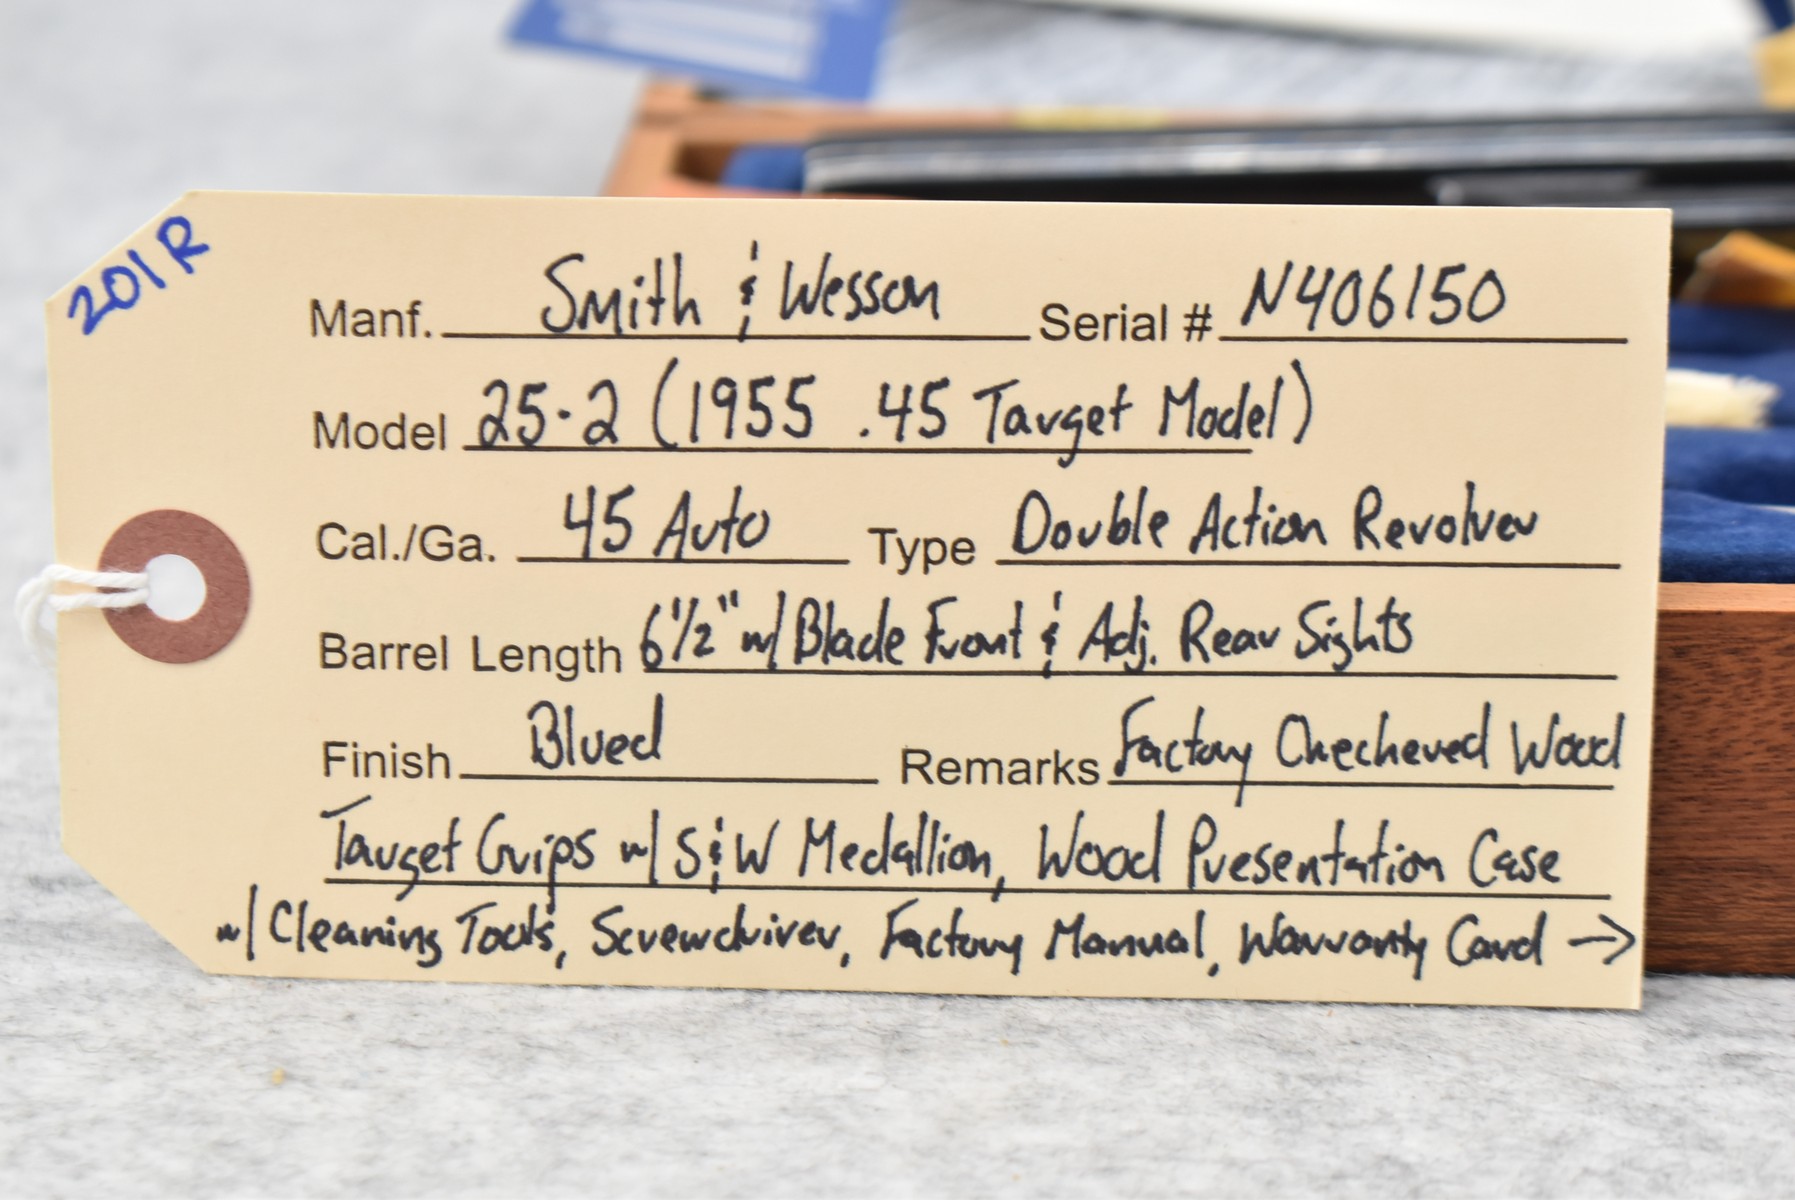 201R
Manf. Smith & Wesson Serial # N406150
Model 25-2 (1955 .45 Target Model)
Cal./Ga. 45 Auto Type Double Action Revolver
Barrel Length 6 1/2" w/ Blade Front & Adj. Rear Sights
Finish Blued Remarks Factory Checkered Wood
Target Grips w/ S&W Medallion, Wood Presentation Case
w/ Cleaning Tools, Screwdriver, Factory Manual, Warranty Card →